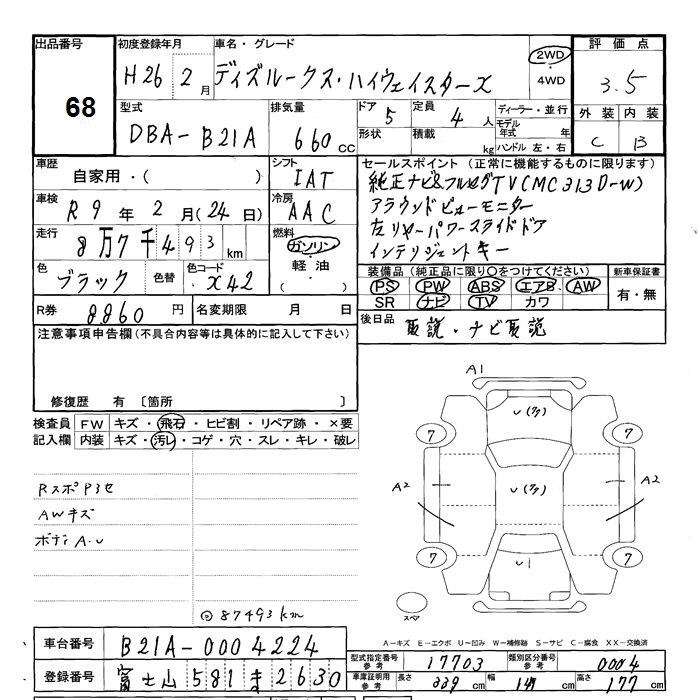 出品番号 68
初度登録年月 H26 2月
車名・グレード ディズルークス・ハイウェイスターX
2WD
4WD
評価点 3.5
外装 内装
C B
型式 DBA-B21A
排気量 660cc
ドア 5
形状
定員 4人
積載 kg
ディーラー・並行
モデル年式 年
ハンドル 左・右
車歴 自家用・( )
シフト IAT
車検 R9年2月(24日)
冷房 AAC
走行 8万7千493km
燃料 ガソリン
軽油
( )
色 ブラック 色替 色コード X42
R券 8860円
名変期限 月 日
セールスポイント(正常に機能するものに限ります)
純正ナビ&フルセグTV(MC313D-W)
アラウンドビューモニター
左リヤーパワースライドドア
インテリジェントキー
装備品(純正品に限り○をつけてください)
PS PW ABS エアB AW
SR ナビ TV カワ
新車保証書
有・無
後日品 取説・ナビ取説
注意事項申告欄(不具合内容等は具体的に記入して下さい)
修復歴 有〔箇所 〕
検査員記入欄
FW キズ・飛石・ヒビ割・リペア跡・×要
内装 キズ・汚レ・コゲ・穴・スレ・キレ・破レ
RスポPヨセ
AWキズ
ボディA.U
◎87493km
A1
U(多)
7
7
A2
U(多)
A2
7
7
U1
スペア
A-キズ E-エクボ U-凹み W-補修跡 S-サビ C-腐食 XX-交換済
車台番号 B21A-0004224
登録番号 富士山581ま2630
型式指定番号 参考 17703
類別区分番号 参考 0004
車庫証明用 参考 長さ 339cm 幅 147cm 高さ 177cm